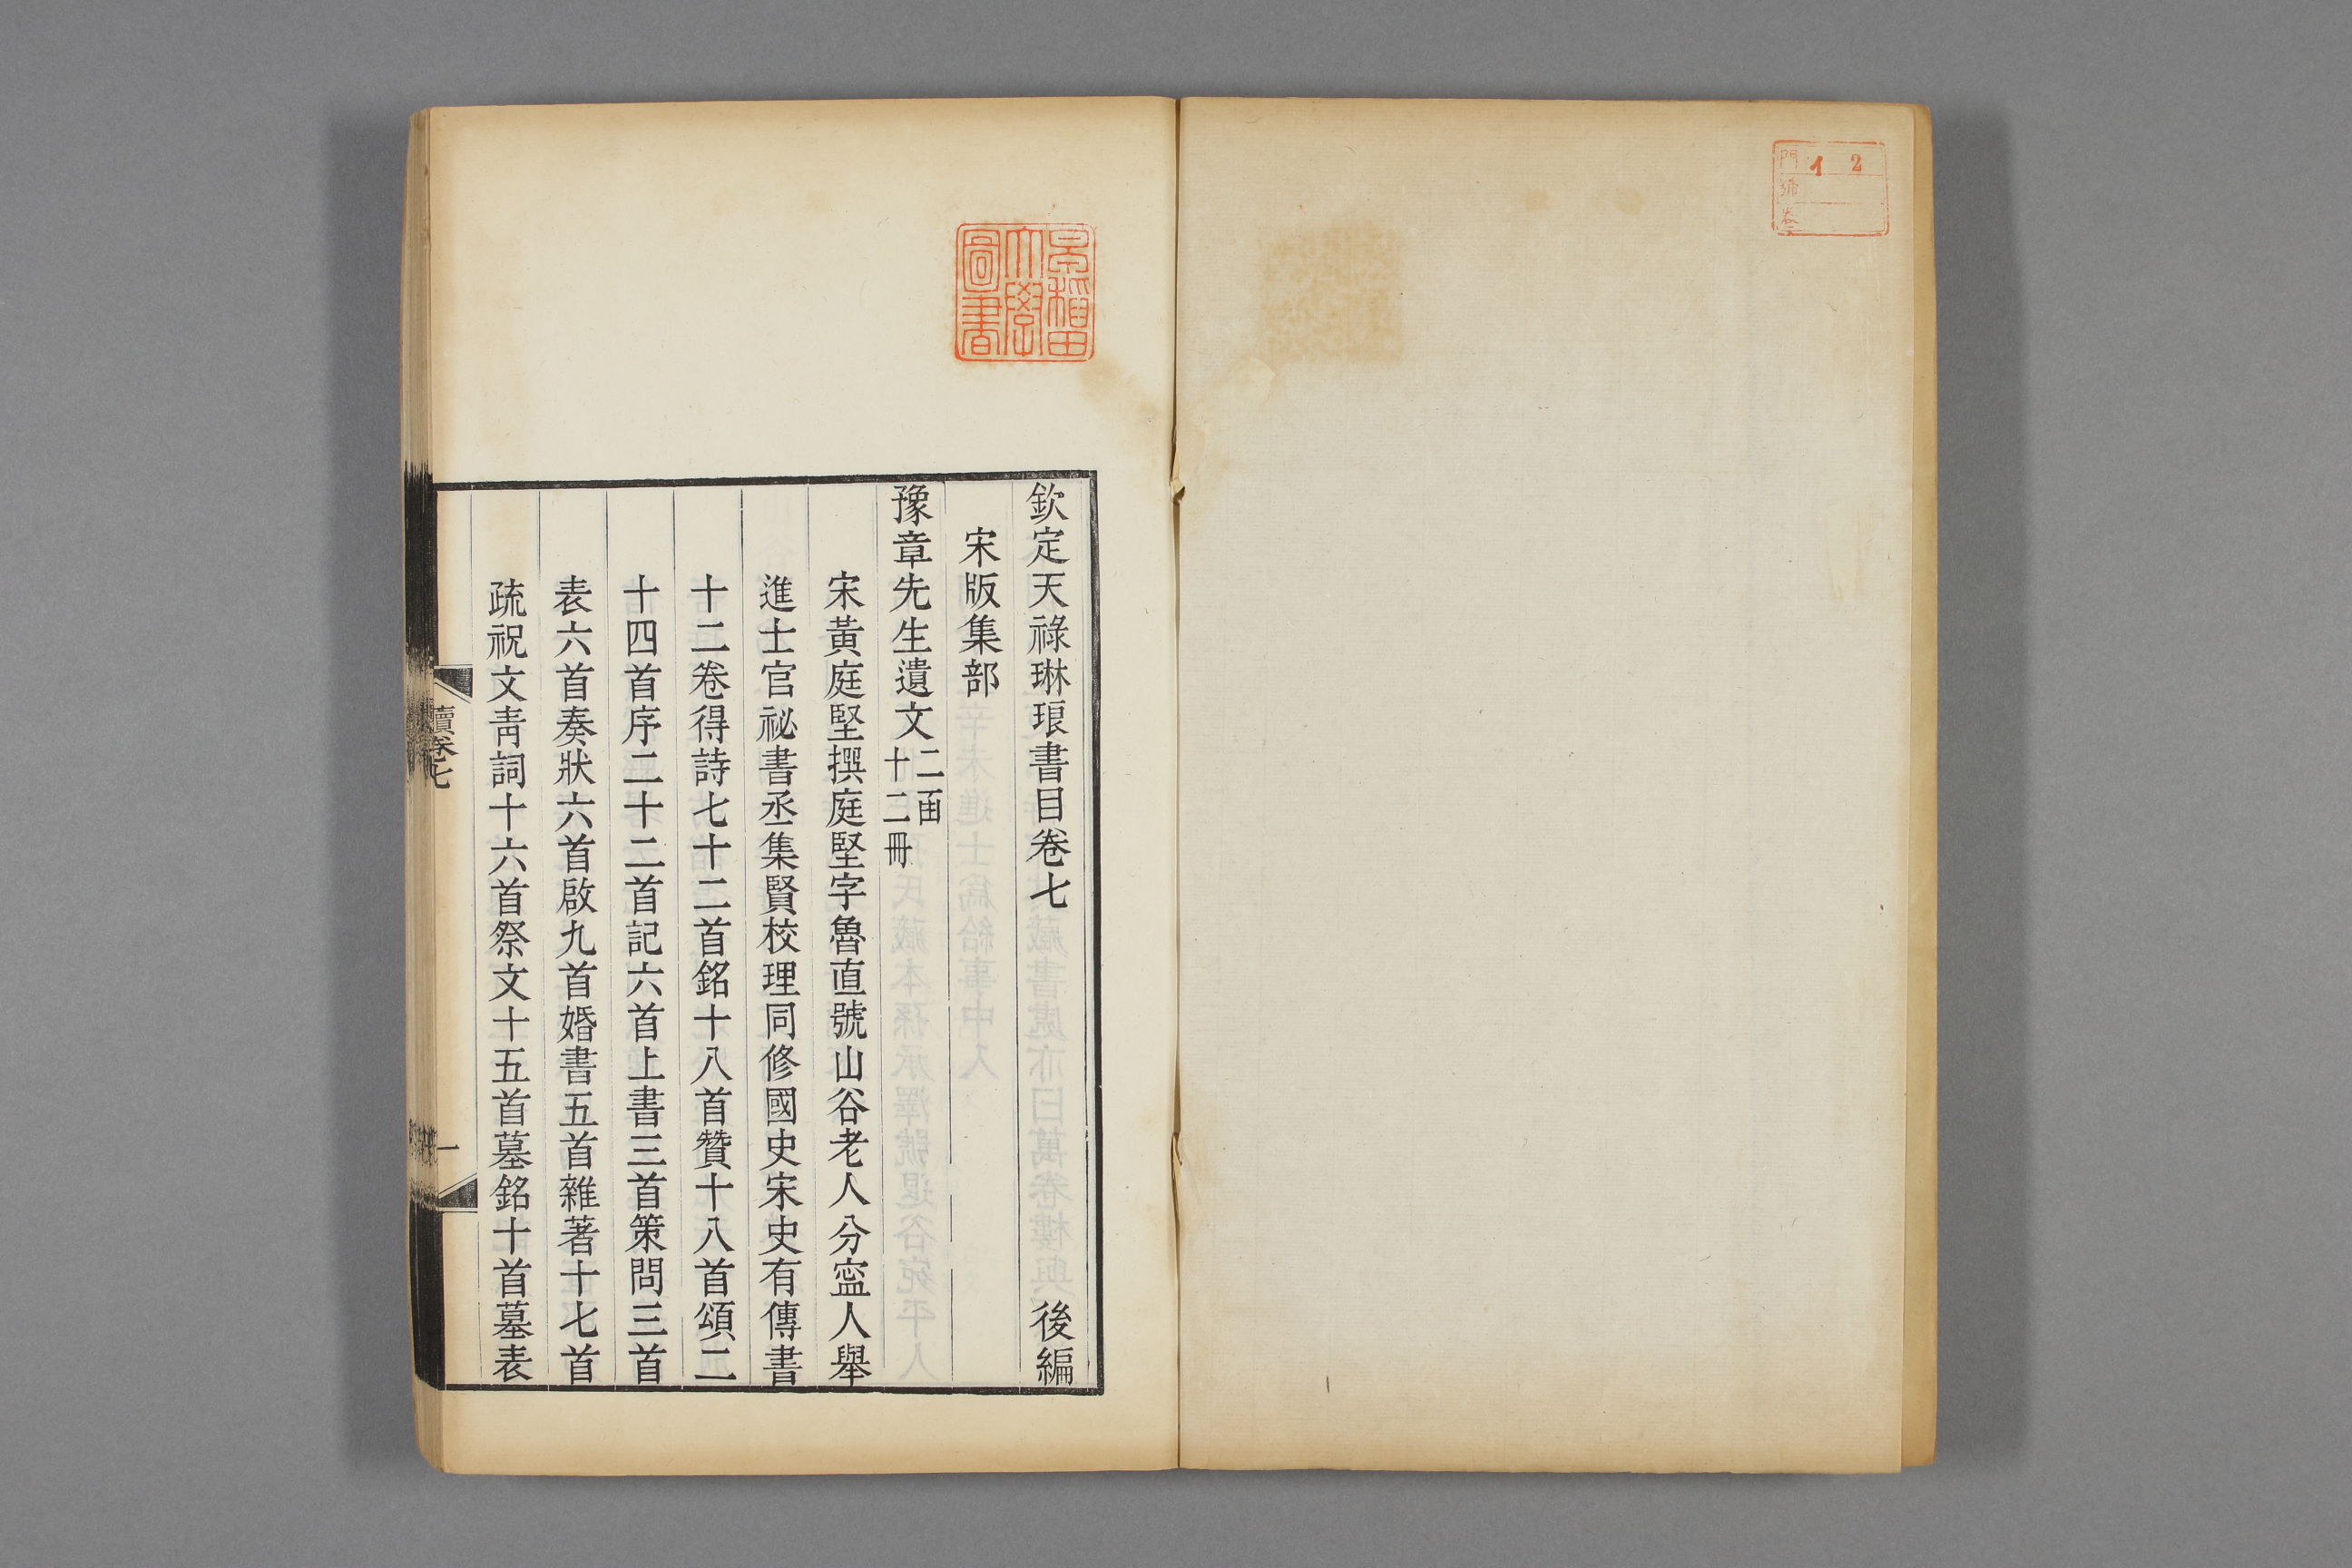 門 1 2
號
卷
早稲田
大學
圖書
欽定天祿琳琅書目卷七 後編
宋版集部
豫章先生遺文二函十二冊
宋黃庭堅撰庭堅字魯直號山谷老人分寍人舉
進士官祕書丞集賢校理同修國史宋史有傳書
十二卷得詩七十二首銘十八首贊十八首頌二
十四首序二十二首記六首上書三首策問三首
表六首奏狀六首啟九首婚書五首雜著十七首
疏祝文靑詞十六首祭文十五首墓銘十首墓表
續卷七
一